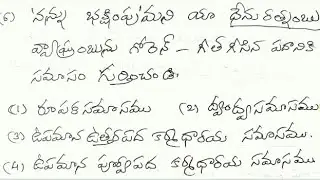 (6) 'నన్ను భక్షింపు'మని యా ధేనురత్నంబు
వ్యాఘ్రంబును గోరెన్ – గీత గీసిన పదానికి
సమాసం గుర్తించండి.
(1) రూపక సమాసము (2) ద్వంద్వసమాసము
(3) ఉపమాన ఉత్తరపద కర్మధారయ సమాసము.
(4) ఉపమాన పూర్వపద కర్మధారయ సమాసము